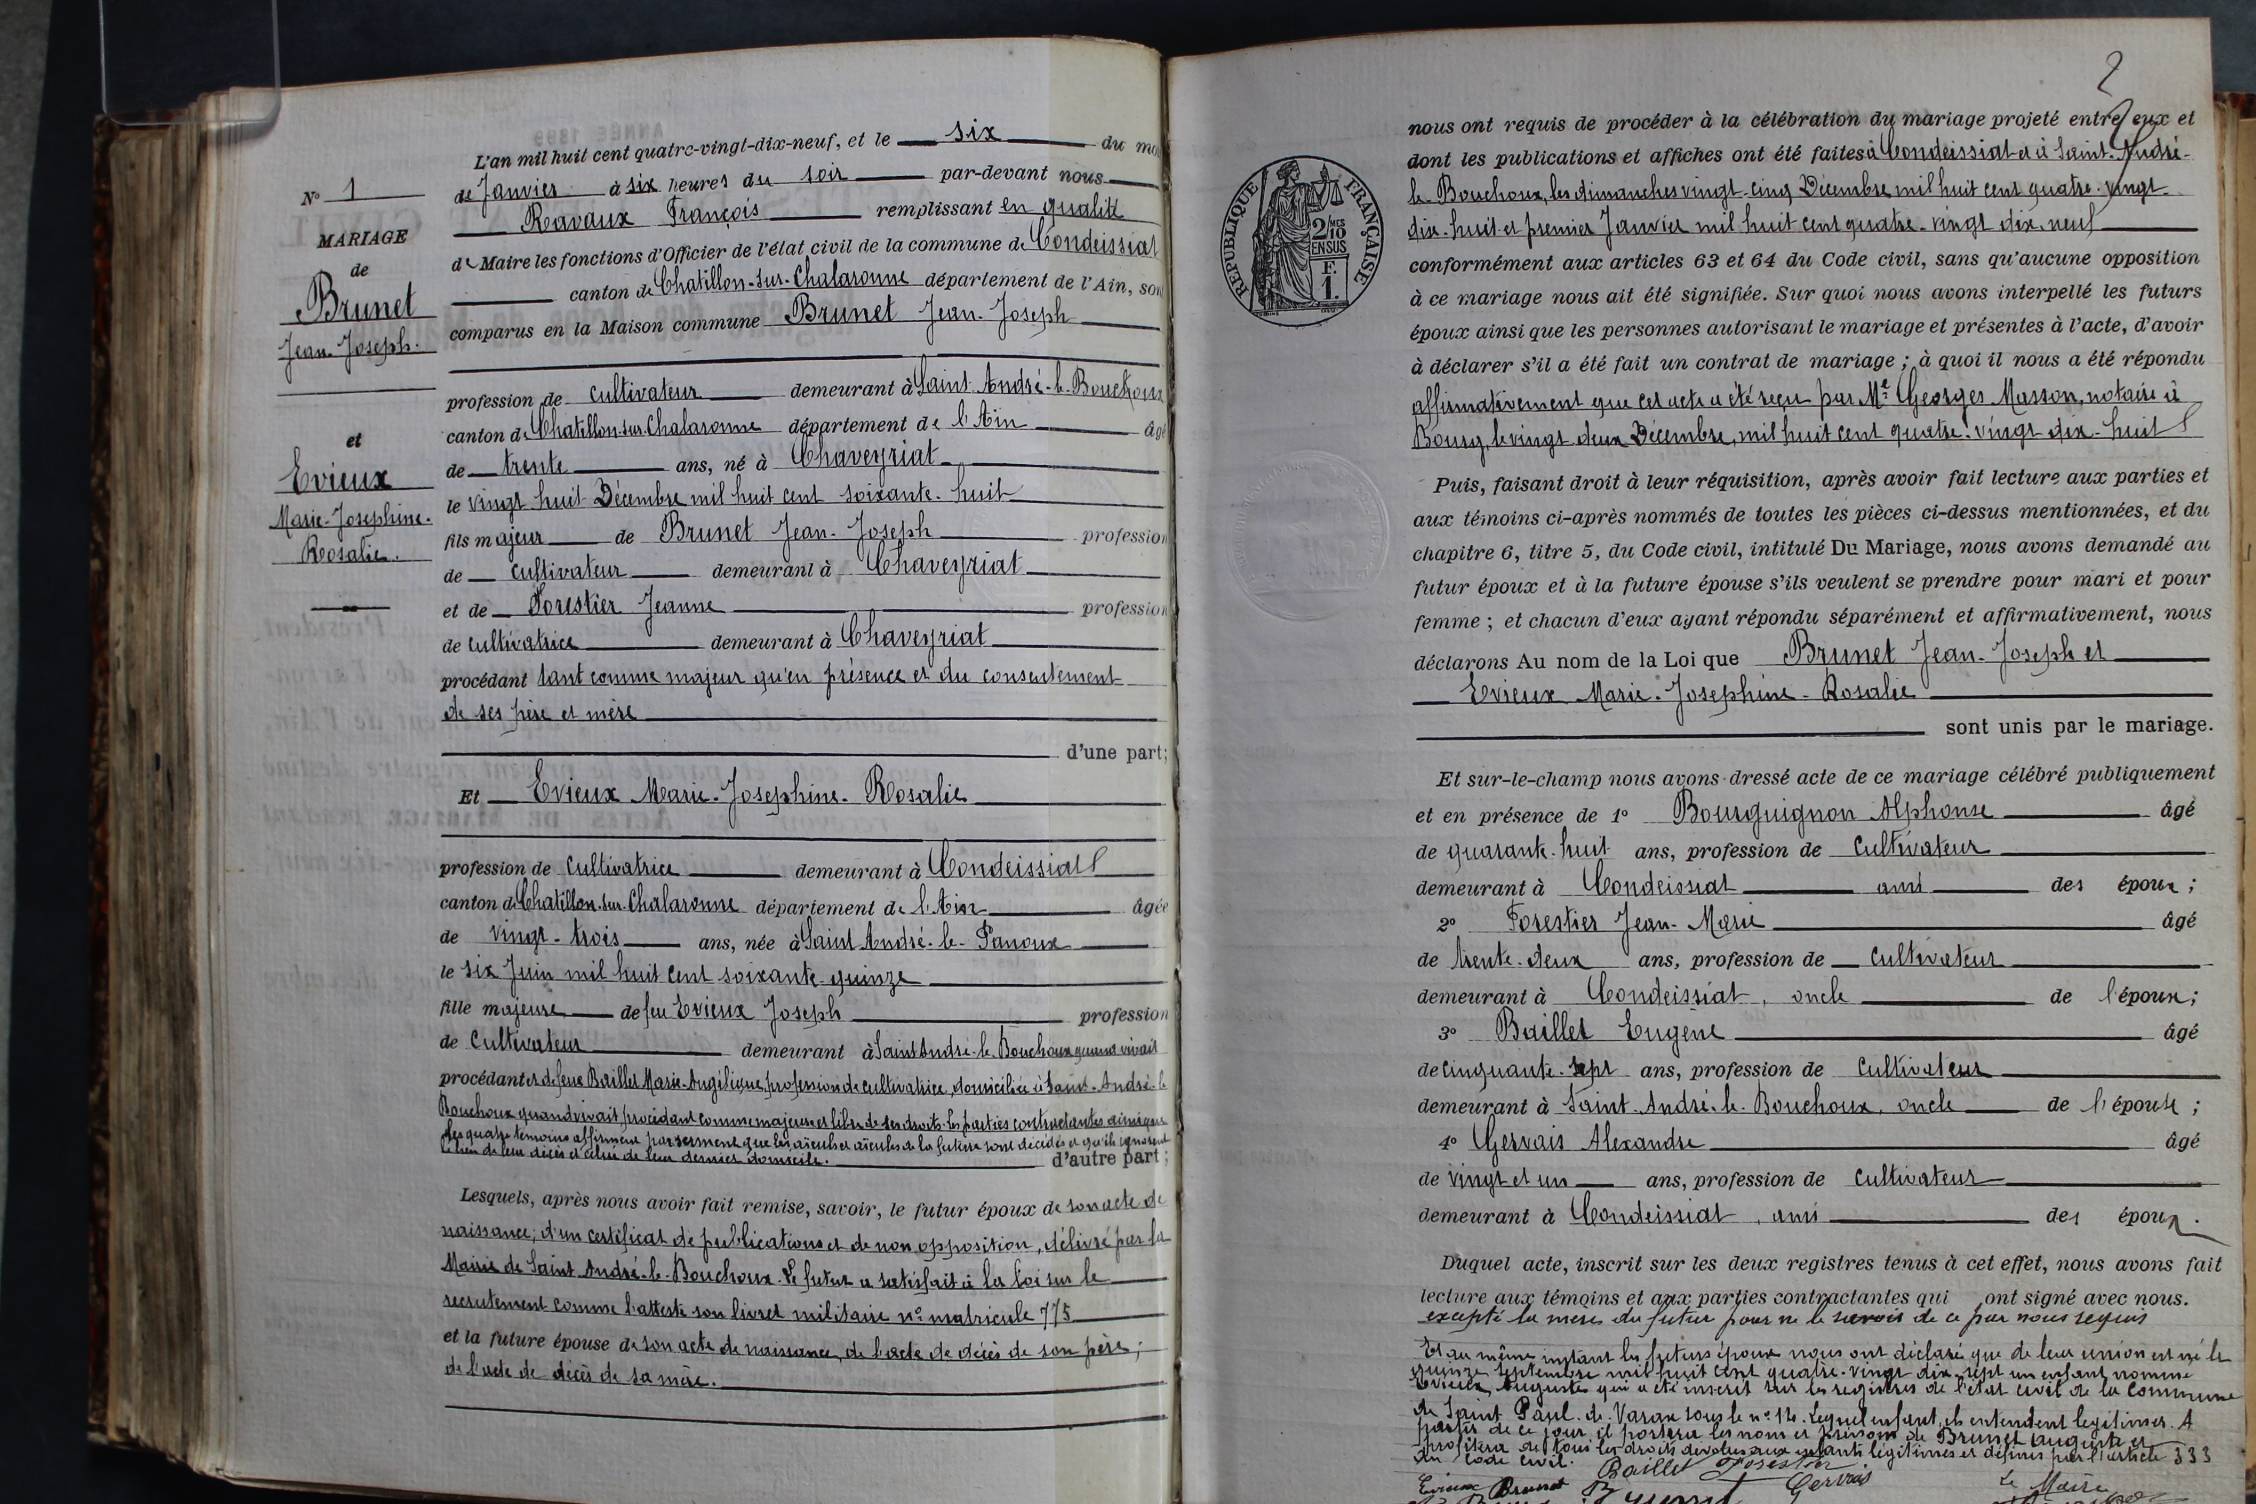 L'an mil huit cent quatre-vingt-dix-neuf, et le six du mo
de Janvier à six heures du soir par-devant nous
Ravaux François remplissant en qualité
de Maire les fonctions d'Officier de l'état civil de la commune de Condeissiat
canton de Chatillon-sur-Chalaronne département de l'Ain, son
comparus en la Maison commune Brunet Jean-Joseph
N° 1
MARIAGE
de
Brunet
Jean-Joseph.
et
Evieux
Marie-Josephine-
Rosalie.
profession de cultivateur demeurant à Saint-André-le-Bouchoux
canton de Chatillon-sur-Chalaronne département de l'Ain âgé
de trente ans, né à Chaveyriat
le vingt huit Décembre mil huit cent soixante-huit
fils majeur de Brunet Jean-Joseph profession
de cultivateur demeurant à Chaveyriat
et de Forestier Jeanne profession
de cultivatrice demeurant à Chaveyriat
procédant tant comme majeur qu'en présence et du consentement
de ses père et mère
d'une part;
Et Evieux Marie-Josephine-Rosalie
profession de cultivatrice demeurant à Condeissiat
canton de Chatillon-sur-Chalaronne département de l'Ain âgée
de vingt-trois ans, née à Saint André-le-Panoux
le six Juin mil huit cent soixante-quinze
fille majeure de feu Evieux Joseph profession
de Cultivateur demeurant à Saint André-le-Bouchoux quand vivait
procédant et de feue Baillet Marie-Angélique, profession de cultivatrice, domiciliée à Saint-André-le
Bouchoux quand vivait, procédant comme majeure et libre de ses droits. les parties contractantes ainsi que
les quatre témoins affirment par serment que les aïeuls et aïeules de la future sont décédés et qu'ils ignorent
le lieu de leur décès et celui de leur dernier domicile. d'autre part;
Lesquels, après nous avoir fait remise, savoir, le futur époux de son acte de
naissance; d'un certificat de publications et de non opposition, délivré par la
Mairie de Saint André-le-Bouchoux. Le futur a satisfait à la loi sur le
recrutement comme l'atteste son livret militaire n° matricule 775
et la future épouse de son acte de naissance, de l'acte de décès de son père;
de l'acte de décès de sa mère.
2
nous ont requis de procéder à la célébration du mariage projeté entre eux et
dont les publications et affiches ont été faites à Condeissiat et à Saint-André-
le-Bouchoux, les dimanches vingt-cinq Décembre mil huit cent quatre-vingt
dix-huit et premier Janvier mil huit cent quatre-vingt dix-neuf
RÉPUBLIQUE FRANÇAISE
2/10MES
EN SUS
F.
1.
conformément aux articles 63 et 64 du Code civil, sans qu'aucune opposition
à ce mariage nous ait été signifiée. Sur quoi nous avons interpellé les futurs
époux ainsi que les personnes autorisant le mariage et présentes à l'acte, d'avoir
à déclarer s'il a été fait un contrat de mariage; à quoi il nous a été répondu
affirmativement que cet acte a été reçu par Me Georges Masson, notaire à
Bourg, le vingt deux Décembre, mil huit cent quatre-vingt dix-huit
Puis, faisant droit à leur réquisition, après avoir fait lecture aux parties et
aux témoins ci-après nommés de toutes les pièces ci-dessus mentionnées, et du
chapitre 6, titre 5, du Code civil, intitulé Du Mariage, nous avons demandé au
futur époux et à la future épouse s'ils veulent se prendre pour mari et pour
femme; et chacun d'eux ayant répondu séparément et affirmativement, nous
déclarons Au nom de la Loi que Brunet Jean-Joseph et
Evieux Marie-Josephine-Rosalie
sont unis par le mariage.
Et sur-le-champ nous avons dressé acte de ce mariage célébré publiquement
et en présence de 1° Bourguignon Alphonse âgé
de quarante-huit ans, profession de cultivateur
demeurant à Condeissiat ami des époux;
2° Forestier Jean-Marie âgé
de trente-deux ans, profession de cultivateur
demeurant à Condeissiat, oncle de l'époux;
3° Baillet Eugène âgé
de cinquante-sept ans, profession de cultivateur
demeurant à Saint-André-le-Bouchoux, oncle de l'épouse;
4° Gervais Alexandre âgé
de vingt et un ans, profession de cultivateur
demeurant à Condeissiat, ami des époux.
Duquel acte, inscrit sur les deux registres tenus à cet effet, nous avons fait
lecture aux témoins et aux parties contractantes qui ont signé avec nous.
excepté la mère du futur pour ne le savoir de ce par nous requis
Et au même instant les futurs époux nous ont déclaré que de leur union est né le
quinze Septembre mil huit cent quatre-vingt dix-sept un enfant nommé
Evieux Auguste qui a été inscrit sur les registres de l'état civil de la commune
de Saint Paul-de-Varax sous le n° 14. Lequel enfant, ils entendent legitimer. A
partir de ce jour il portera les nom et prénom de Brunet Auguste et
profitera de tous les droits dévolus aux enfants légitimes et définis par l'article 333
du Code civil. Baillet Forestier
Evieux Brunet Gervais Le Maire